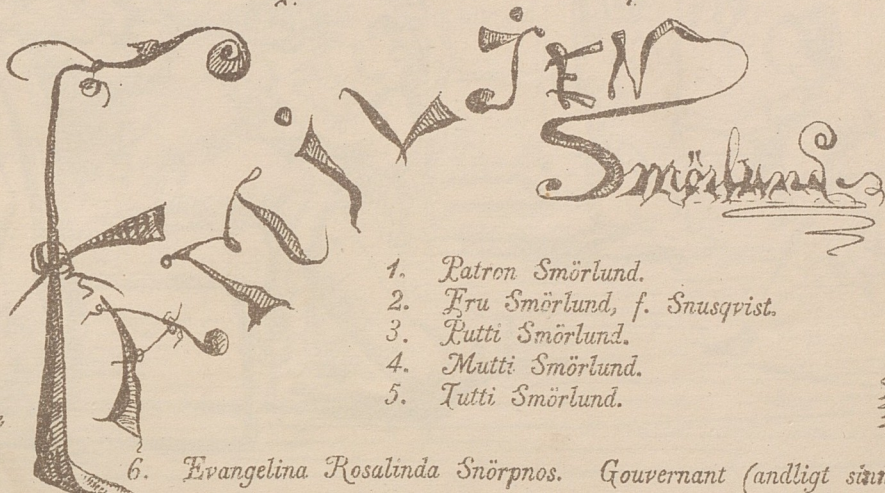 FAMILJEN
Smörlund.
1. Patron Smörlund.
2. Fru Smörlund, f. Snusqvist.
3. Putti Smörlund.
4. Mutti Smörlund.
5. Tutti Smörlund.
6. Evangelina Rosalinda Snörpnos. Gouvernant (andligt